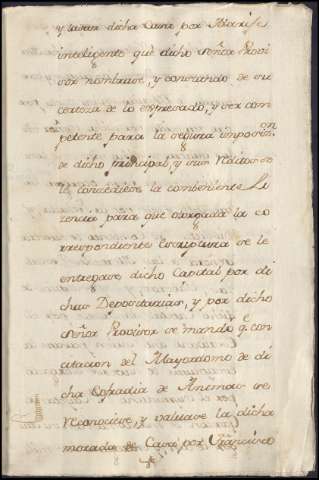 y tasar dicha Casa por Alarife
inteligente que dicho señor Provi
sor nombrase, y constando de su
certeza de lo expresado, y ser com
petente para la segura imposizon
de dicho principal, y sus Reditos se
le concediese la combeniente Li
cencia para que otorgada la co
rrespondiente Escriptura se le
entregase dicho Capital por di
chas Depositarias, y por dicho
señor Provisor se mandó q. con
citacion del Mayordomo de di
cha Cofradia de Animas se
Reconociese, y valuase la dicha
morada de Casas por Francisco